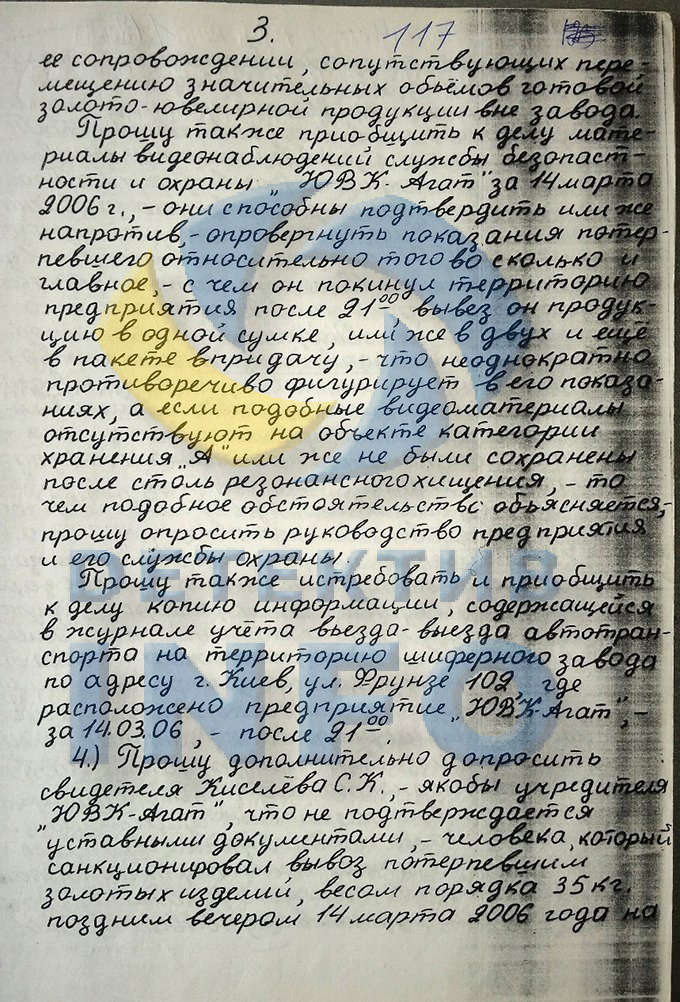 3.
117
ее сопровождении, сопутствующих пере-
мещению значительных объёмов готовой
золото-ювелирной продукции вне завода.
Прошу также приобщить к делу мате-
риалы видеонаблюдений службы безопаст-
ности и охраны „ЮВК-Агат" за 14 марта
2006 г., - они способны подтвердить или же
напротив, - опровергнуть показания потер-
певшего относительно того во сколько и
главное, - с чем он покинул территорию
предприятия после 21⁰⁰, вывез он продук-
цию в одной сумке, или же в двух и ещё
в пакете впридачу, - что неоднократно
противоречиво фигурирует в его показа-
ниях, а если подобные видеоматериалы
отсутствуют на объекте категории
хранения „А" или же не были сохранены
после столь резонансного хищения, - то
чем подобное обстоятельство объясняется, -
прошу опросить руководство предприятия
и его службы охраны.
Прошу также истребовать и приобщить
к делу копию информации, содержащейся
в журнале учёта въезда-выезда автотран-
спорта на территорию шиферного завода
по адресу г. Киев, ул. Фрунзе 102, где
расположено предприятие „ЮВК-Агат", -
за 14.03.06, - после 21⁰⁰.
4.) Прошу дополнительно допросить
свидетеля Киселёва С.К., - якобы учредителя
"ЮВК-Агат", что не подтверждается
уставными документами, - человека, который
санкционировал вывоз потерпевшим
золотых изделий, весом порядка 35 кг.
поздним вечером 14 марта 2006 года на
ДЕТЕКТИВ
INFO